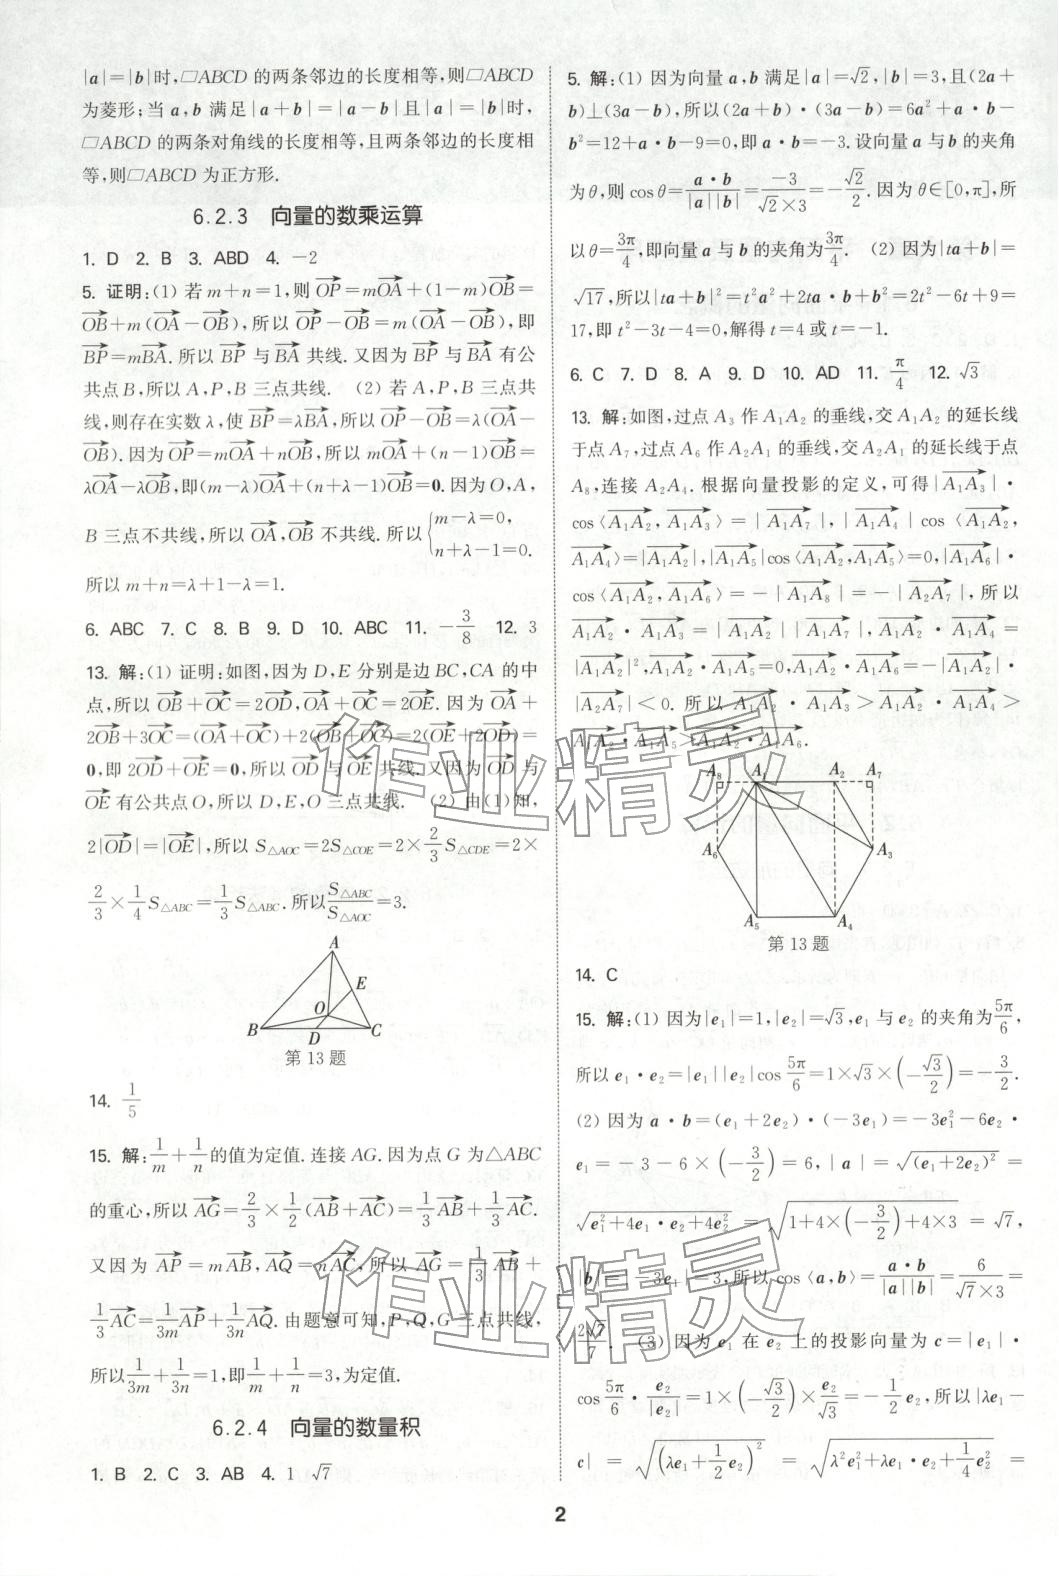 |a|=|b|时,▱ABCD 的两条邻边的长度相等,则▱ABCD
为菱形;当 a,b 满足|a+b|=|a-b|且|a|=|b|时,
▱ABCD 的两条对角线的长度相等,且两条邻边的长度相
等,则▱ABCD 为正方形.
6.2.3 向量的数乘运算
1. D 2. B 3. ABD 4. -2
5. 证明:(1) 若 m+n=1,则 $\overrightarrow{OP}=m\overrightarrow{OA}+(1-m)\overrightarrow{OB}=$
$\overrightarrow{OB}+m(\overrightarrow{OA}-\overrightarrow{OB})$,所以 $\overrightarrow{OP}-\overrightarrow{OB}=m(\overrightarrow{OA}-\overrightarrow{OB})$,即
$\overrightarrow{BP}=m\overrightarrow{BA}$.所以 $\overrightarrow{BP}$ 与 $\overrightarrow{BA}$ 共线. 又因为 $\overrightarrow{BP}$ 与 $\overrightarrow{BA}$ 有公
共点 B,所以 A,P,B 三点共线. (2) 若 A,P,B 三点共
线,则存在实数 λ,使 $\overrightarrow{BP}=λ\overrightarrow{BA}$,所以 $\overrightarrow{OP}-\overrightarrow{OB}=λ(\overrightarrow{OA}-$
$\overrightarrow{OB})$. 因为 $\overrightarrow{OP}=m\overrightarrow{OA}+n\overrightarrow{OB}$,所以 $m\overrightarrow{OA}+(n-1)\overrightarrow{OB}=$
$λ\overrightarrow{OA}-λ\overrightarrow{OB}$,即$(m-λ)\overrightarrow{OA}+(n+λ-1)\overrightarrow{OB}=\mathbf{0}$.因为 O,A,
B 三点不共线,所以 $\overrightarrow{OA},\overrightarrow{OB}$ 不共线. 所以 $\begin{cases}m-λ=0,\\n+λ-1=0.\end{cases}$
所以 m+n=λ+1-λ=1.
6. ABC 7. C 8. B 9. D 10. ABC 11. $-\frac{3}{8}$ 12. 3
13. 解:(1) 证明:如图,因为 D,E 分别是边 BC,CA 的中
点,所以 $\overrightarrow{OB}+\overrightarrow{OC}=2\overrightarrow{OD},\overrightarrow{OA}+\overrightarrow{OC}=2\overrightarrow{OE}$. 因为 $\overrightarrow{OA}+$
$2\overrightarrow{OB}+3\overrightarrow{OC}=(\overrightarrow{OA}+\overrightarrow{OC})+2(\overrightarrow{OB}+\overrightarrow{OC})=2(\overrightarrow{OE}+2\overrightarrow{OD})=$
$\mathbf{0}$,即 $2\overrightarrow{OD}+\overrightarrow{OE}=\mathbf{0}$,所以 $\overrightarrow{OD}$ 与 $\overrightarrow{OE}$ 共线. 又因为 $\overrightarrow{OD}$ 与
$\overrightarrow{OE}$ 有公共点 O,所以 D,E,O 三点共线. (2) 由(1)知,
$2|\overrightarrow{OD}|=|\overrightarrow{OE}|$,所以 $S_{△AOC}=2S_{△COE}=2×\frac{2}{3}S_{△CDE}=2×$
$\frac{2}{3}×\frac{1}{4}S_{△ABC}=\frac{1}{3}S_{△ABC}$. 所以 $\frac{S_{△ABC}}{S_{△AOC}}=3$.
A
E
O
B
D
C
第13题
14. $\frac{1}{5}$
15. 解:$\frac{1}{m}+\frac{1}{n}$的值为定值. 连接 AG. 因为点 G 为△ABC
的重心,所以 $\overrightarrow{AG}=\frac{2}{3}×\frac{1}{2}(\overrightarrow{AB}+\overrightarrow{AC})=\frac{1}{3}\overrightarrow{AB}+\frac{1}{3}\overrightarrow{AC}$.
又因为 $\overrightarrow{AP}=m\overrightarrow{AB},\overrightarrow{AQ}=n\overrightarrow{AC}$,所以 $\overrightarrow{AG}=\frac{1}{3}\overrightarrow{AB}+$
$\frac{1}{3}\overrightarrow{AC}=\frac{1}{3m}\overrightarrow{AP}+\frac{1}{3n}\overrightarrow{AQ}$. 由题意可知,P,Q,G 三点共线,
所以$\frac{1}{3m}+\frac{1}{3n}=1$,即$\frac{1}{m}+\frac{1}{n}=3$,为定值.
6.2.4 向量的数量积
1. B 2. C 3. AB 4. 1 $\sqrt{7}$
5. 解:(1) 因为向量 a,b 满足|a|=$\sqrt{2}$,|b|=3,且(2a+
b)⊥(3a-b),所以(2a+b)·(3a-b)=6a²+a·b-
b²=12+a·b-9=0,即 a·b=-3. 设向量 a 与 b 的夹角
为 θ,则 cosθ=$\frac{a·b}{|a||b|}=\frac{-3}{\sqrt{2}×3}=-\frac{\sqrt{2}}{2}$. 因为 θ∈[0,π],所
以 θ=$\frac{3π}{4}$,即向量 a 与 b 的夹角为$\frac{3π}{4}$. (2) 因为|ta+b|=
$\sqrt{17}$,所以|ta+b|²=t²a²+2ta·b+b²=2t²-6t+9=
17,即 t²-3t-4=0,解得 t=4 或 t=-1.
6. C 7. D 8. A 9. D 10. AD 11. $\frac{π}{4}$ 12. $\sqrt{3}$
13. 解:如图,过点 A₃ 作 A₁A₂ 的垂线,交 A₁A₂ 的延长线
于点 A₇,过点 A₆ 作 A₂A₁ 的垂线,交 A₂A₁ 的延长线于点
A₈,连接 A₂A₄. 根据向量投影的定义,可得 $|\overrightarrow{A_1A_3}|·$
$\cos〈\overrightarrow{A_1A_2},\overrightarrow{A_1A_3}〉=|\overrightarrow{A_1A_7}|,|\overrightarrow{A_1A_4}|\cos〈\overrightarrow{A_1A_2},$
$\overrightarrow{A_1A_4}〉=|\overrightarrow{A_1A_2}|,|\overrightarrow{A_1A_5}|\cos〈\overrightarrow{A_1A_2},\overrightarrow{A_1A_5}〉=0,|\overrightarrow{A_1A_6}|·$
$\cos〈\overrightarrow{A_1A_2},\overrightarrow{A_1A_6}〉=-|\overrightarrow{A_1A_8}|=-|\overrightarrow{A_2A_7}|$,所以
$\overrightarrow{A_1A_2}·\overrightarrow{A_1A_3}=|\overrightarrow{A_1A_2}||\overrightarrow{A_1A_7}|,\overrightarrow{A_1A_2}·\overrightarrow{A_1A_4}=$
$|\overrightarrow{A_1A_2}|^2,\overrightarrow{A_1A_2}·\overrightarrow{A_1A_5}=0,\overrightarrow{A_1A_2}·\overrightarrow{A_1A_6}=-|\overrightarrow{A_1A_2}|·$
$|\overrightarrow{A_2A_7}|<0$. 所以 $\overrightarrow{A_1A_2}·\overrightarrow{A_1A_3}>\overrightarrow{A_1A_2}·\overrightarrow{A_1A_4}>$
$\overrightarrow{A_1A_2}·\overrightarrow{A_1A_5}>\overrightarrow{A_1A_2}·\overrightarrow{A_1A_6}$.
A₈ A₁ A₂ A₇
A₆ A₃
A₅ A₄
第13题
14. C
15. 解:(1) 因为|e₁|=1,|e₂|=$\sqrt{3}$,e₁ 与 e₂ 的夹角为$\frac{5π}{6}$,
所以 e₁·e₂=|e₁||e₂|cos$\frac{5π}{6}$=1×$\sqrt{3}$×$\left(-\frac{\sqrt{3}}{2}\right)=-\frac{3}{2}$.
(2) 因为 a·b=(e₁+2e₂)·(-3e₁)=-3e₁²-6e₂·
e₁=-3-6×$\left(-\frac{3}{2}\right)$=6,|a|=$\sqrt{(e_1+2e_2)^2}$=
$\sqrt{e_1^2+4e_1·e_2+4e_2^2}=\sqrt{1+4×\left(-\frac{3}{2}\right)+4×3}=\sqrt{7}$,
|b|=|-3e₁|=3,所以 cos〈a,b〉=$\frac{a·b}{|a||b|}=\frac{6}{\sqrt{7}×3}=$
$\frac{2\sqrt{7}}{7}$. (3) 因为 e₁ 在 e₂ 上的投影向量为 c=|e₁|·
cos$\frac{5π}{6}·\frac{e_2}{|e_2|}=1×\left(-\frac{\sqrt{3}}{2}\right)×\frac{e_2}{\sqrt{3}}=-\frac{1}{2}e_2$,所以|λe₁-
c|=$\sqrt{\left(λe_1+\frac{1}{2}e_2\right)^2}=\sqrt{λ^2e_1^2+λe_1·e_2+\frac{1}{4}e_2^2}=$
2
作业精灵
作业精灵